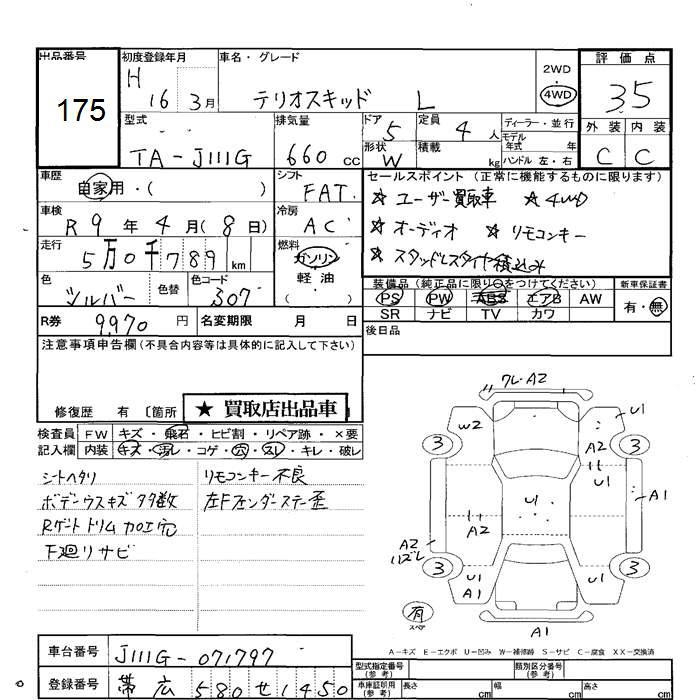 出品番号 初度登録年月 車名・グレード 2WD 評価点
175 H 16 3月 テリオスキッド L 4WD 3.5
型式 排気量 ドア 5 定員 4人 ディーラー・並行 外装 内装
TA-J111G 660cc 形状 W 積載 kg モデル年式 年 C C
ハンドル 左・右
車歴 シフト セールスポイント (正常に機能するものに限ります)
自家用・( ) FAT. ☆ユーザー買取車 ☆4WD
車検 冷房 ☆オーディオ ☆リモコンキー
R 9年 4月(8日) AC ☆スタッドレスタイヤ積込み
走行 燃料
5万0千789km ガソリン
軽油
( )
色 色替 色コード 装備品 (純正品に限り○をつけてください) 新車保証書
シルバー 307 PS PW ABS エアB AW 有・無
R券 9,970円 名変期限 月 日 SR ナビ TV カワ
後日品
注意事項申告欄(不具合内容等は具体的に記入して下さい)
修復歴 有 〔箇所 ★ 買取店出品車
検査員 FW キズ・飛石・ヒビ割・リペア跡・×要
記入欄 内装 キズ・汚レ・コゲ・穴・スレ・キレ・破レ
シートヘタリ リモコンキー不良
ボデーウスキズ多数 左Fフェンダーステー歪
Rゲートトリム加工穴
下廻りサビ
ワレ・A2
W2 U1
A2
3 3
U1
U1 A1
A2
A2
ハズレ
3 3
U1 U1
A1
有
スペア A1
A-キズ E-エクボ U-凹み W-補修跡 S-サビ C-腐食 XX-交換済
車台番号 J111G-071797 型式指定番号(参考) 類別区分番号(参考)
登録番号 帯広 580 せ 1450 車庫証明用(参考) 長さ cm 幅 cm 高さ cm